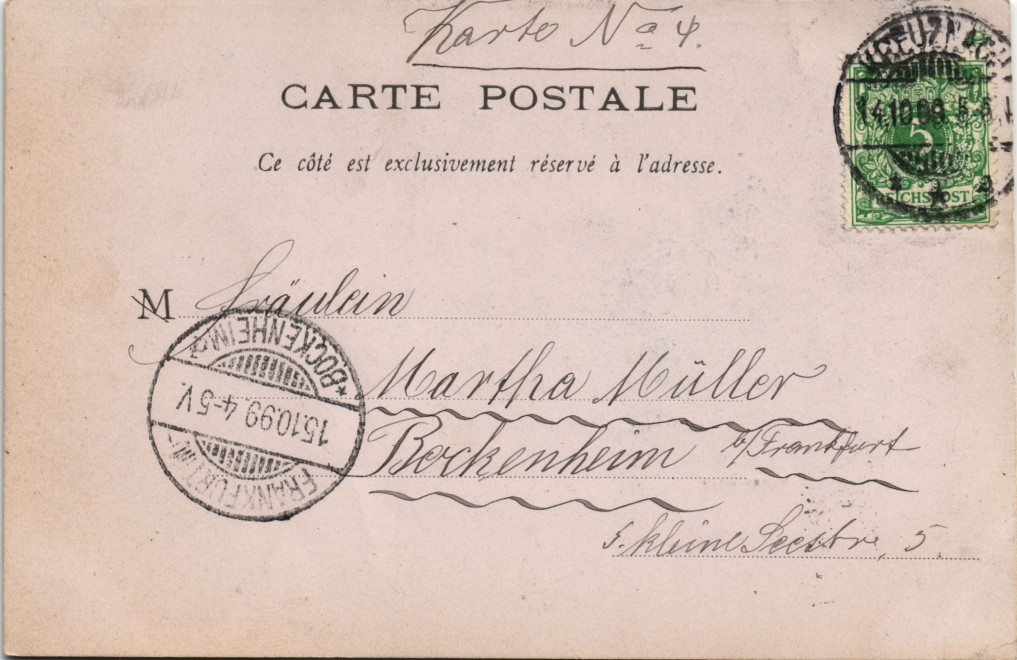 Karte No 4.
CARTE POSTALE
Ce côté est exclusivement réservé à l'adresse.
KREUZNACH
14.10.99. 5-6
5
REICHSPOST
M Fräulein
Martha Müller
Bockenheim b/Frankfurt
5. kleine Seestr. 5.
*BOCKENHEIM
15.10.99. 4-5 V.
FRANKFURT